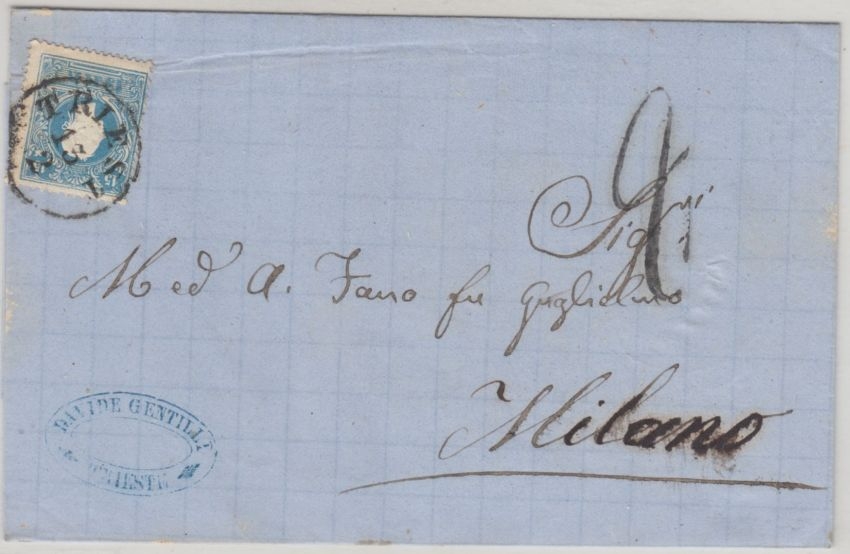 TRIEST
13
2
Sigri
M ed A. Fano fu Guglielmo
Milano
DAVIDE GENTILLI
TRIESTE